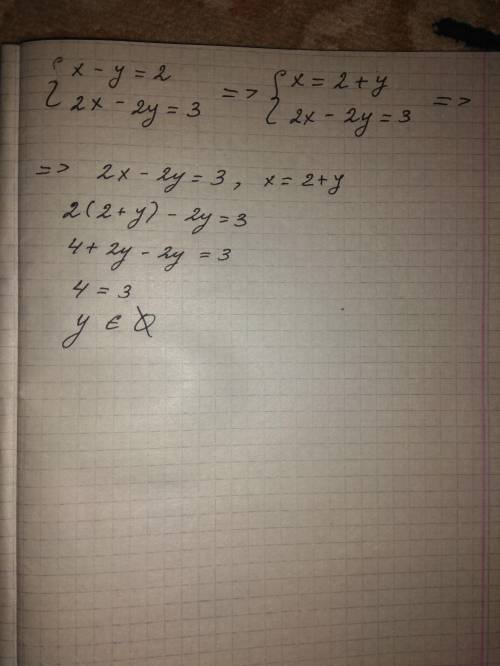 { x - y = 2 => { x = 2 + y =>
{ 2x - 2y = 3 { 2x - 2y = 3
=> 2x - 2y = 3, x = 2 + y
2(2 + y) - 2y = 3
4 + 2y - 2y = 3
4 = 3
y ∈ ∅